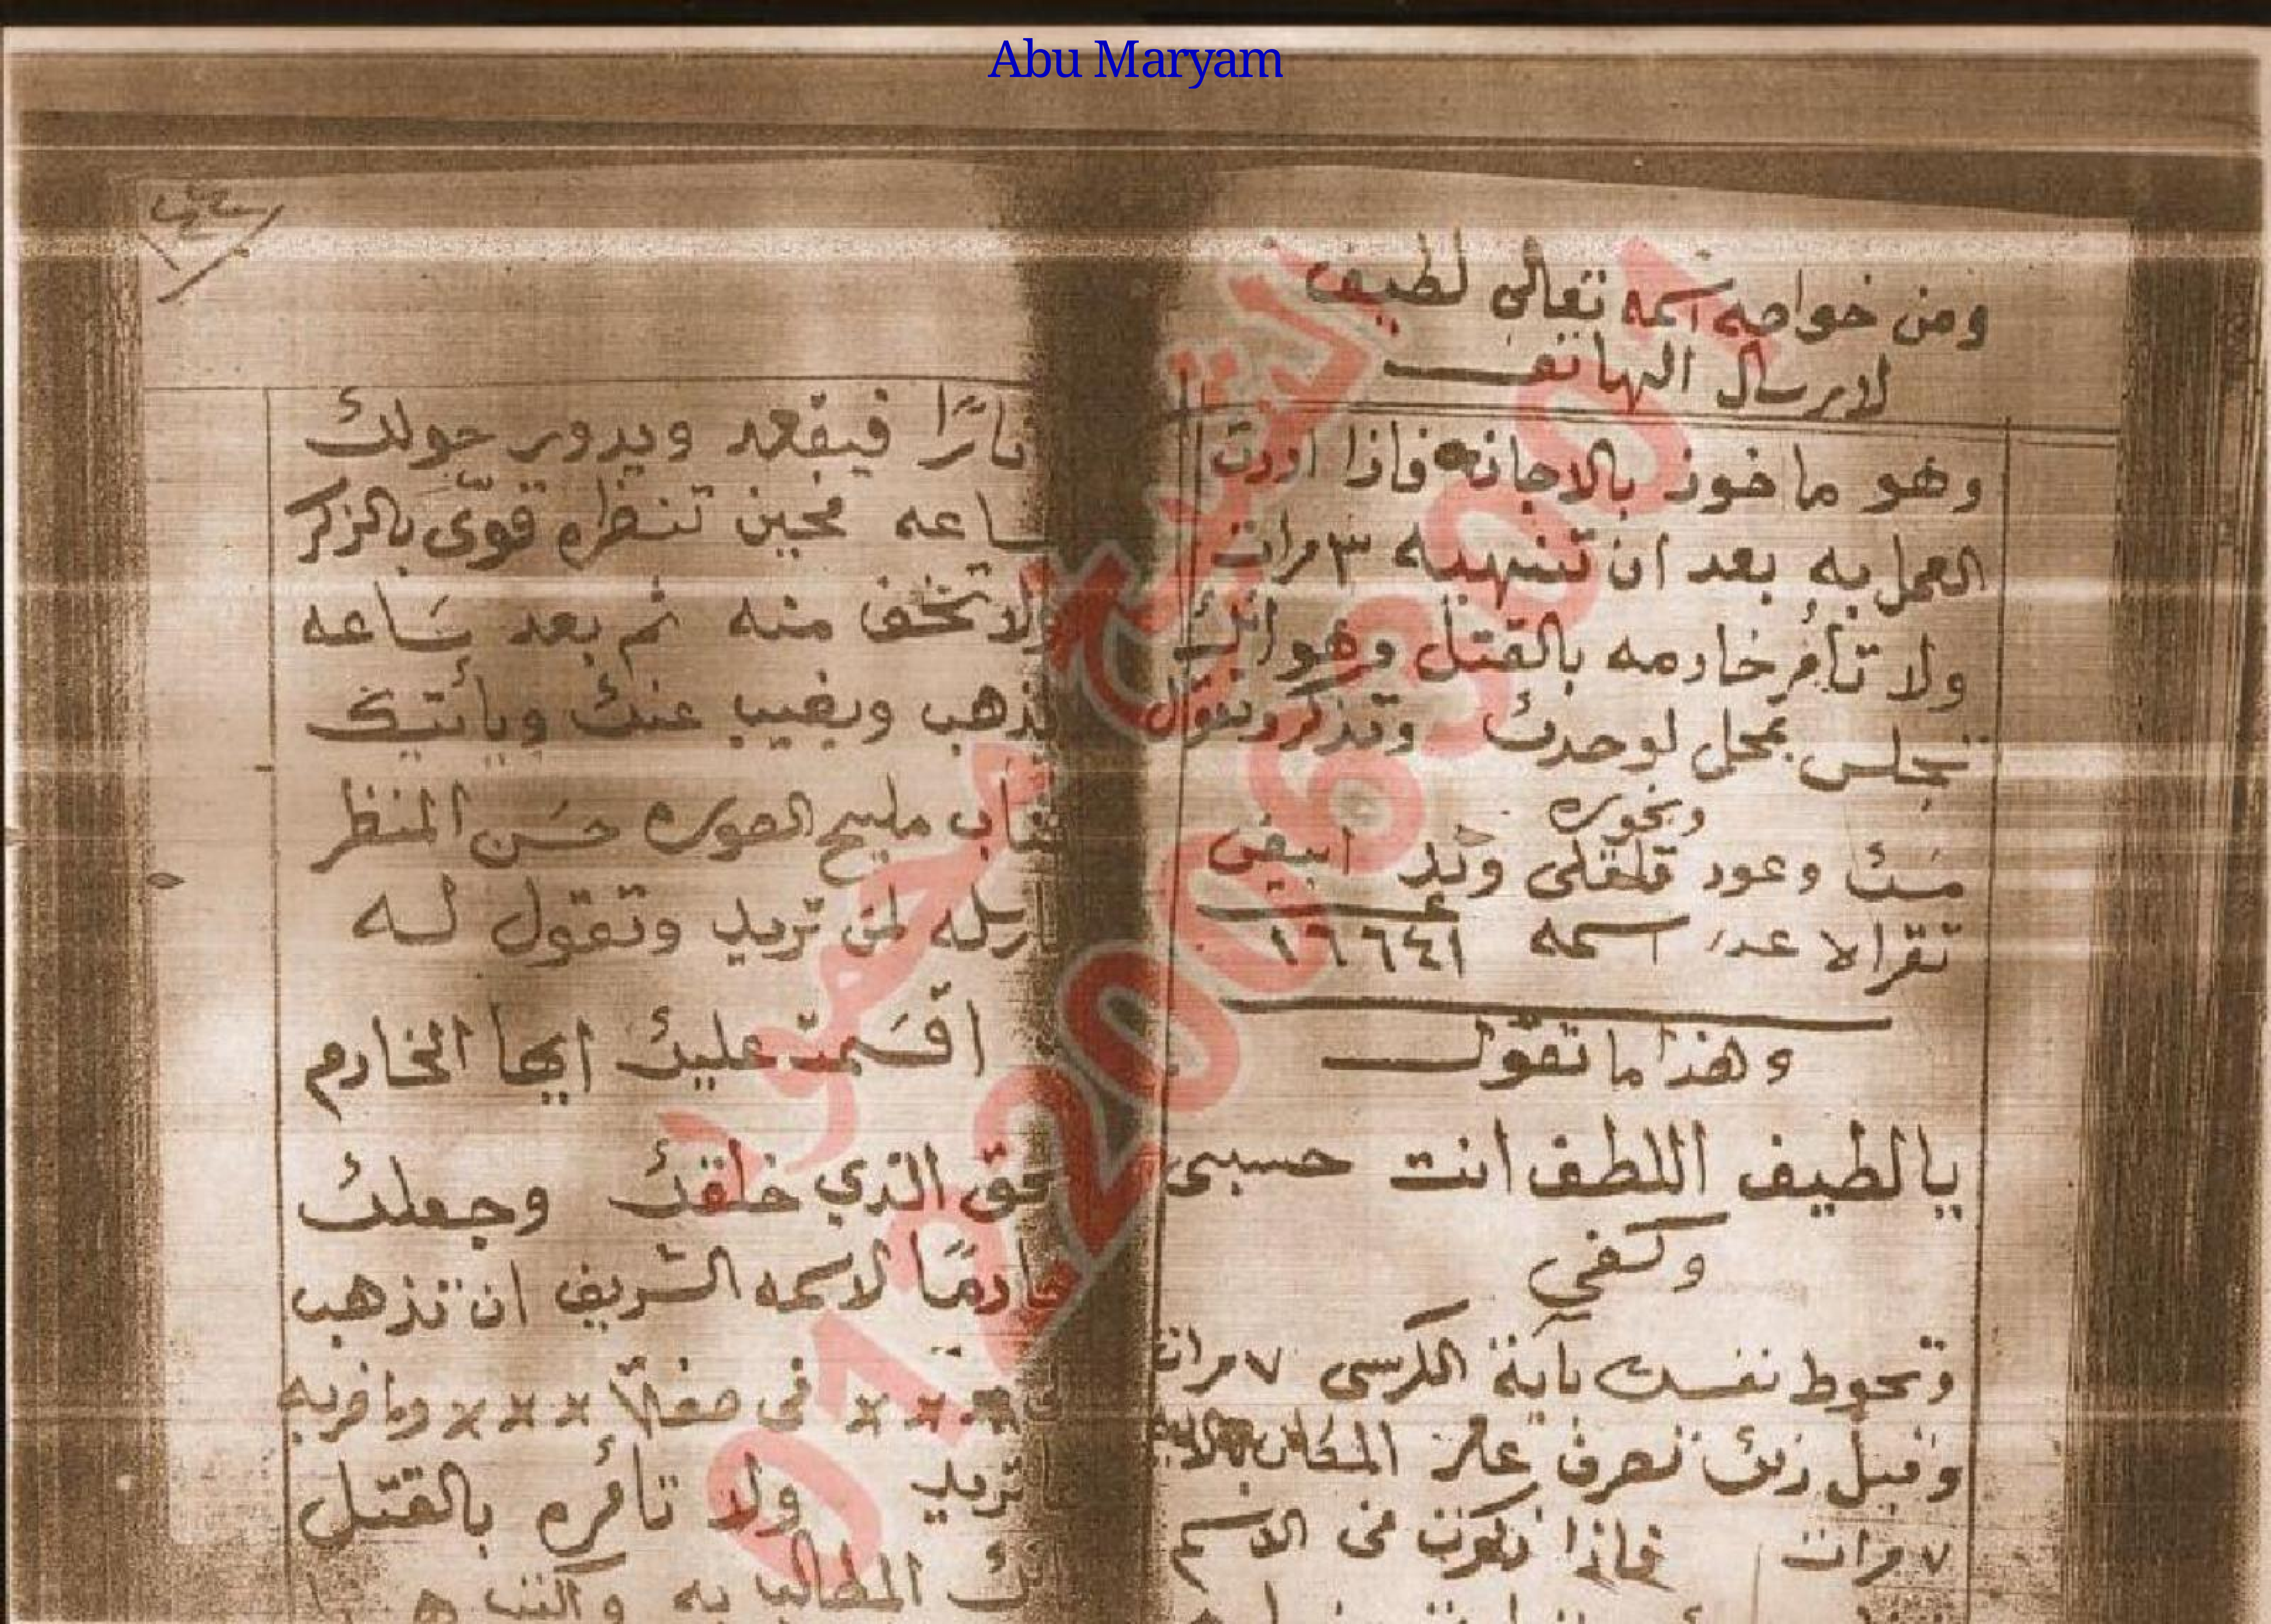 Abu Maryam
ومن خواصه اسمه تعالى لطيف
لارسال الهاتف
وهو ماخوذ بالاجازه فاذا اردت
العمل به بعد ان تنهيه ٣ مرات
ولا تأمر خادمه بالقتل وهو انك
تجلس بمحل لوحدك وتذكر وتقول
وبخوره
مسك وعود قلقلى وند ابيض
تقرا لا عدد اسمه ١٦٦٤١
وهذا ما تقول
يا لطيف اللطف انت حسبى
وكفي
وتحوط نفسك بآية الكرسى ٧ مرات
وقبل ذلك تصرف عامر المكان
٧ مرات فاذا ذكرت فى الاسم
نارًا فيقعد ويدور حولك
ساعه فحين تنظره قوّى بالذكر
ولا تخف منه ثم بعد سَاعه
يذهب ويغيب عنك ويأتيك
شاب مليح الصوره حسَن المنظر
ارسله لمن تريد وتقول له
اقسَمت عليك ايها الخادم
بحق الذي خلقك وجعلك
خادمًا لاسمه الشريف ان تذهب
× × × فى صفة × × × وما
تريد ولا تأمره بالقتل
المطالب به
الشيخ محمود
01220063001